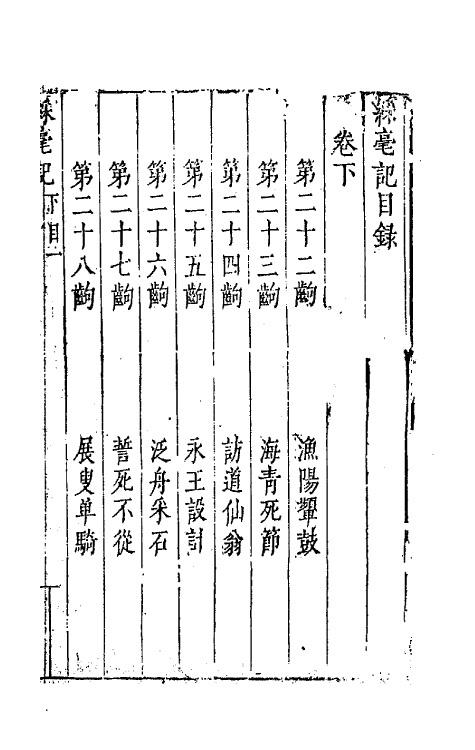 綵毫記目録
卷下
第二十二齣　漁陽鼙鼓
第二十三齣　海青死節
第二十四齣　訪道仙翁
第二十五齣　永王設計
第二十六齣　泛舟采石
第二十七齣　誓死不從
第二十八齣　展叟单騎
綵毫記　下目　一